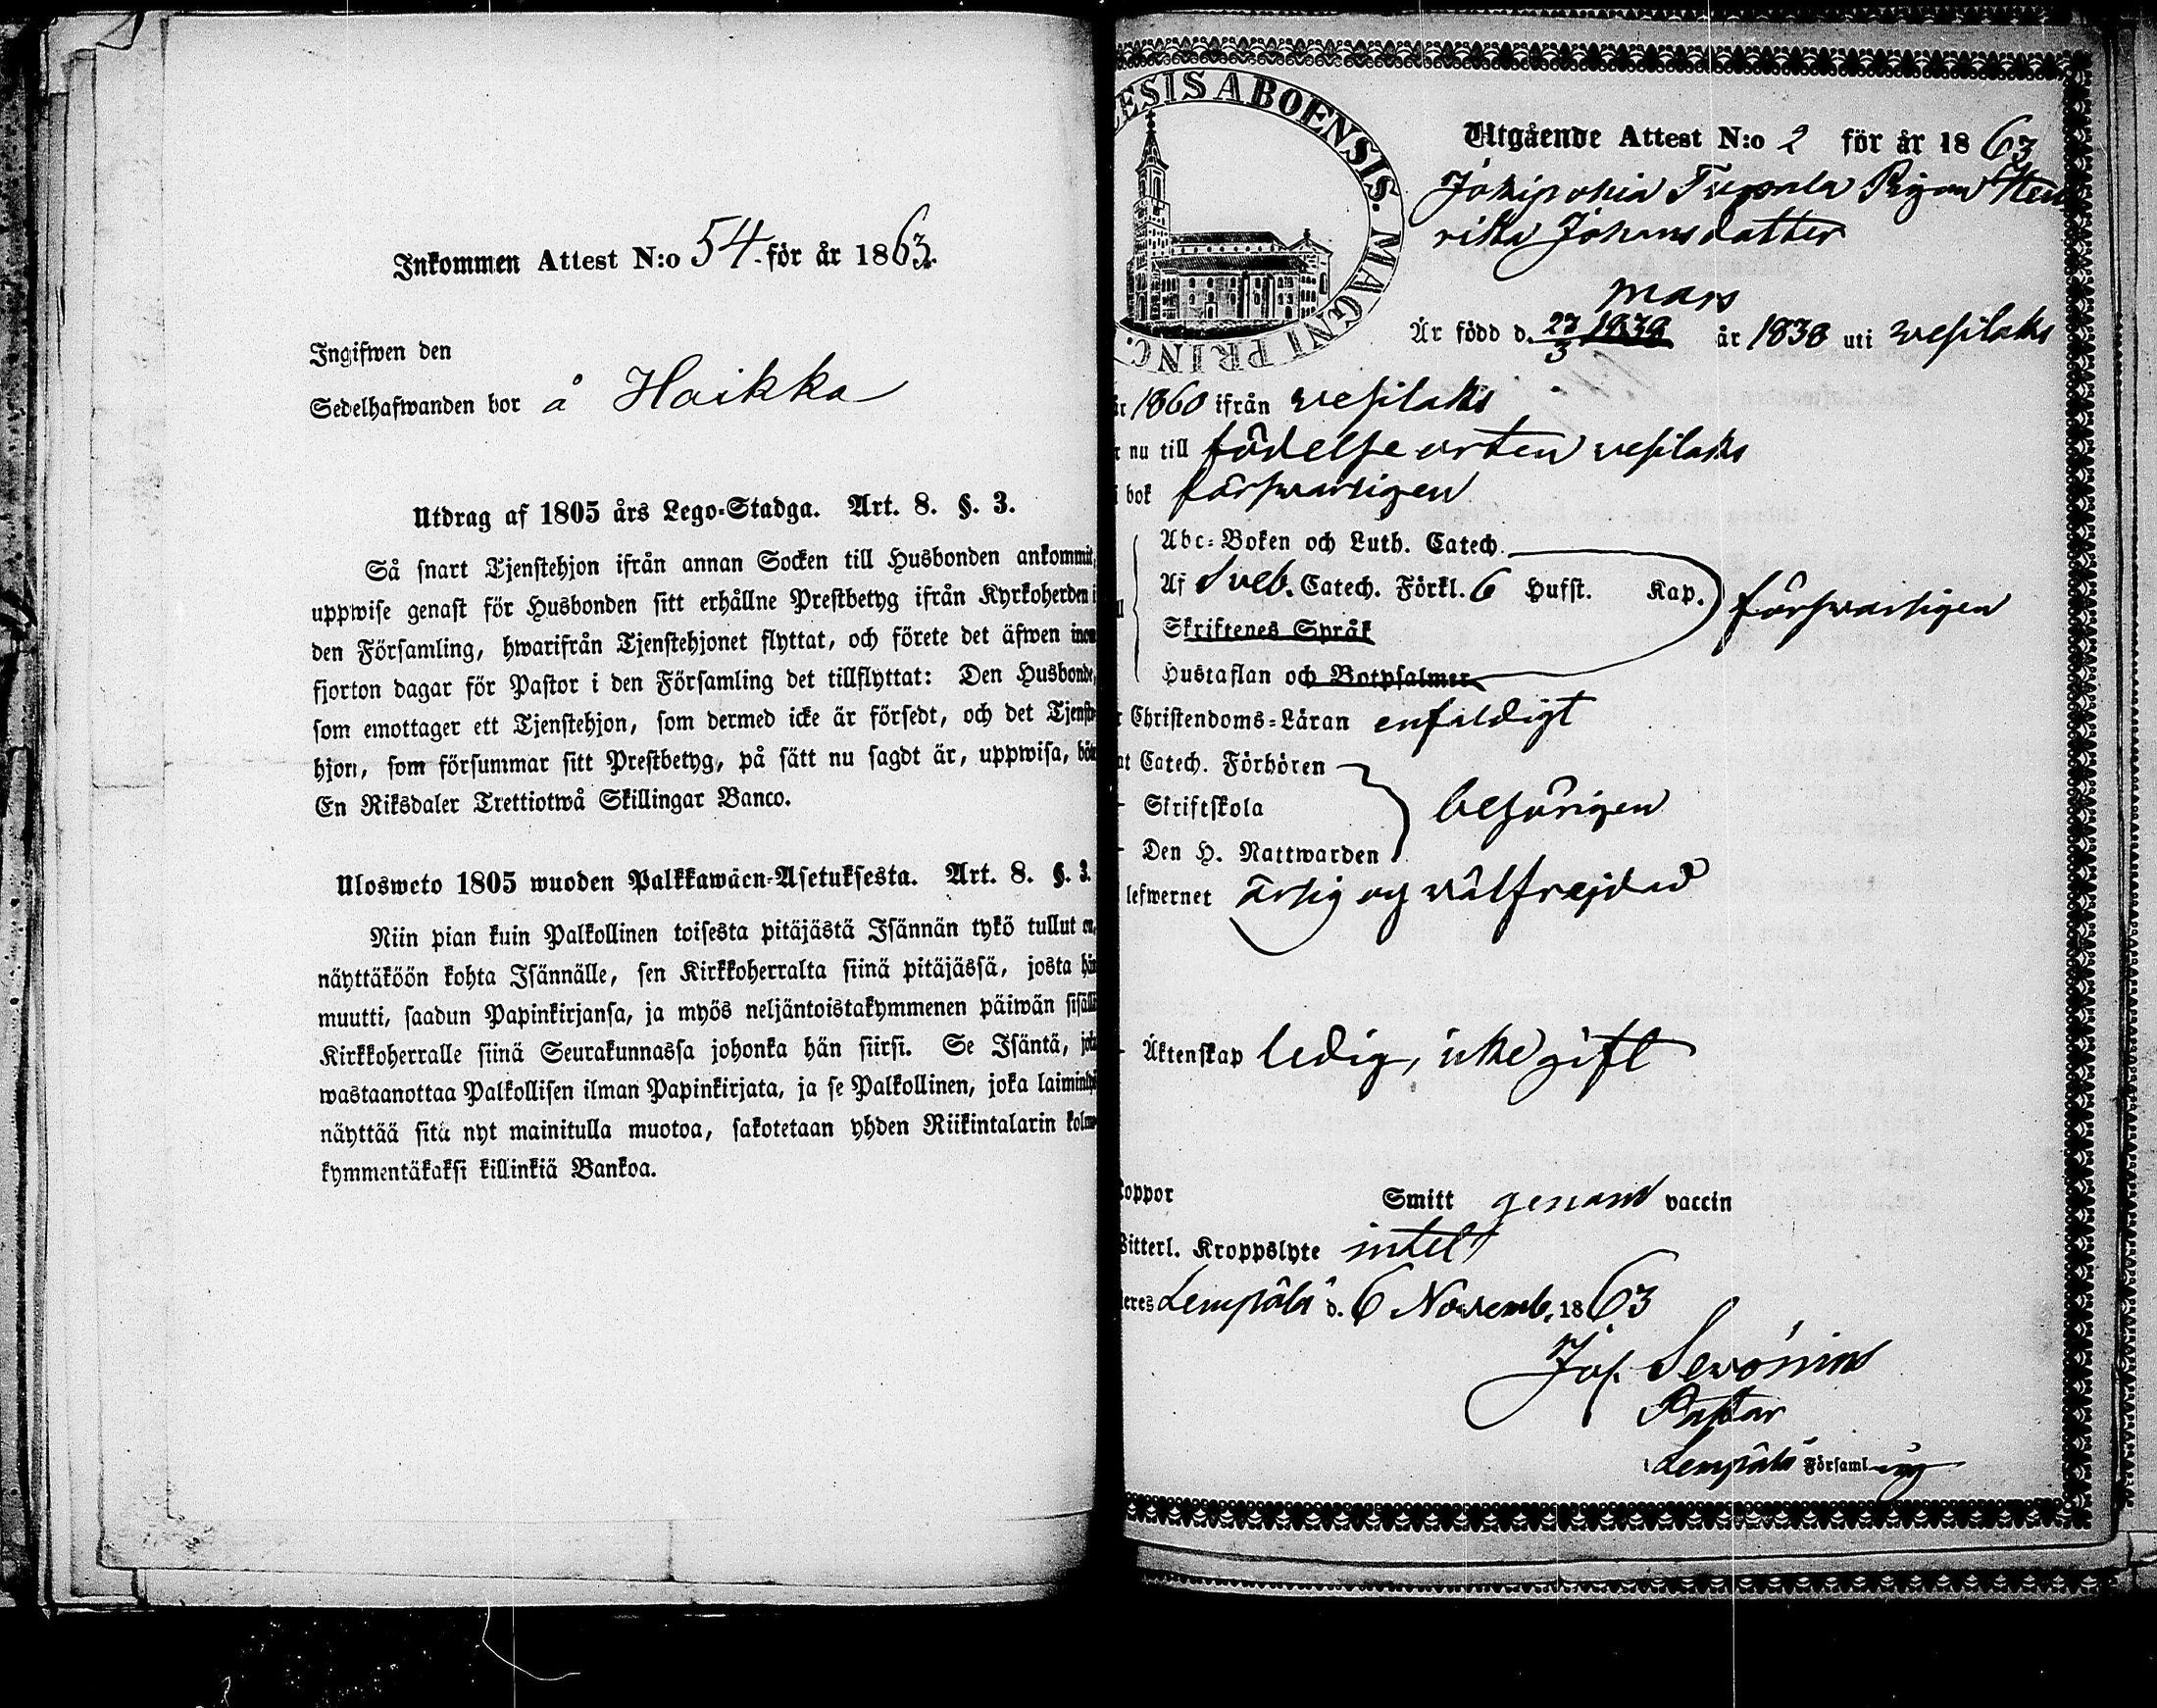 Inkommen Attest N:o 54. för år 1863.
Ingifwen den
Sedelhafwanden bor å Haikka
Utdrag af 1805 års Lego-Stadga. Art. 8. §. 3.
Så snart Tjenstehjon ifrån annan Socken till Husbonden ankommit,
uppwise genast för Husbonden sitt erhållne Prestbetyg ifrån Kyrkoherden i
den Församling, hwarifrån Tjenstehjonet flyttat, och förete det äfwen inom
fjorton dagar för Pastor i den Församling det tillflyttat: Den Husbonde,
som emottager ett Tjenstehjon, som dermed icke är försedt, och det Tjenste-
hjon, som försummar sitt Prestbetyg, på sätt nu sagdt är, uppwisa, böte
En Riksdaler Trettiotwå Skillingar Banco.
Ulosweto 1805 wuoden Palkkawäen-Asetuksesta. Art. 8. §. 3.
Niin pian kuin Palkollinen toisesta pitäjästä Isännän tykö tullut on,
näyttäköön kohta Isännälle, sen Kirkkoherralta siinä pitäjässä, josta hän
muutti, saadun Papinkirjansa, ja myös neljäntoistakymmenen päiwän sisällä
Kirkkoherralle siinä Seurakunnassa johonka hän siirsi. Se Isäntä, joka
wastaanottaa Palkollisen ilman Papinkirjata, ja se Palkollinen, joka laiminlyö
näyttää sitä nyt mainitulla muotoa, sakotetaan yhden Riikintalarin kolme
kymmentäkaksi killinkiä Bankoa.
ESIS ABOENSIS. MAGNI PRINC.
Utgående Attest N:o 2 för år 1863
Jokipohia Tupala Pigan Hen
rika Johansdatter
mars
Är född d. 27/3 1838 år 1838 uti Vesilaks
år 1860 ifrån Vesilaks
r nu till födelse orten Vesilaks
i bok försvarligen
Abc-Boken och Luth. Catech.
Af Sveb. Catech. Förkl. 6 Hufst. Kap. försvarligen
Skriftenes Språk
Hustaflan och Botpsalmer
Christendoms-Läran enfaldigt
at Catech. Förhören
Skriftskola behörigen
Den H. Nattwarden
lefwernet ärlig og välfrejdad
Äktenskap ledig, icke gift
koppor Smitt genom vaccin
Witterl. Kroppslyte intet
eres Lempälä d. 6 Novemb. 1863
Jos.
Pastor
i Lempälä Församling